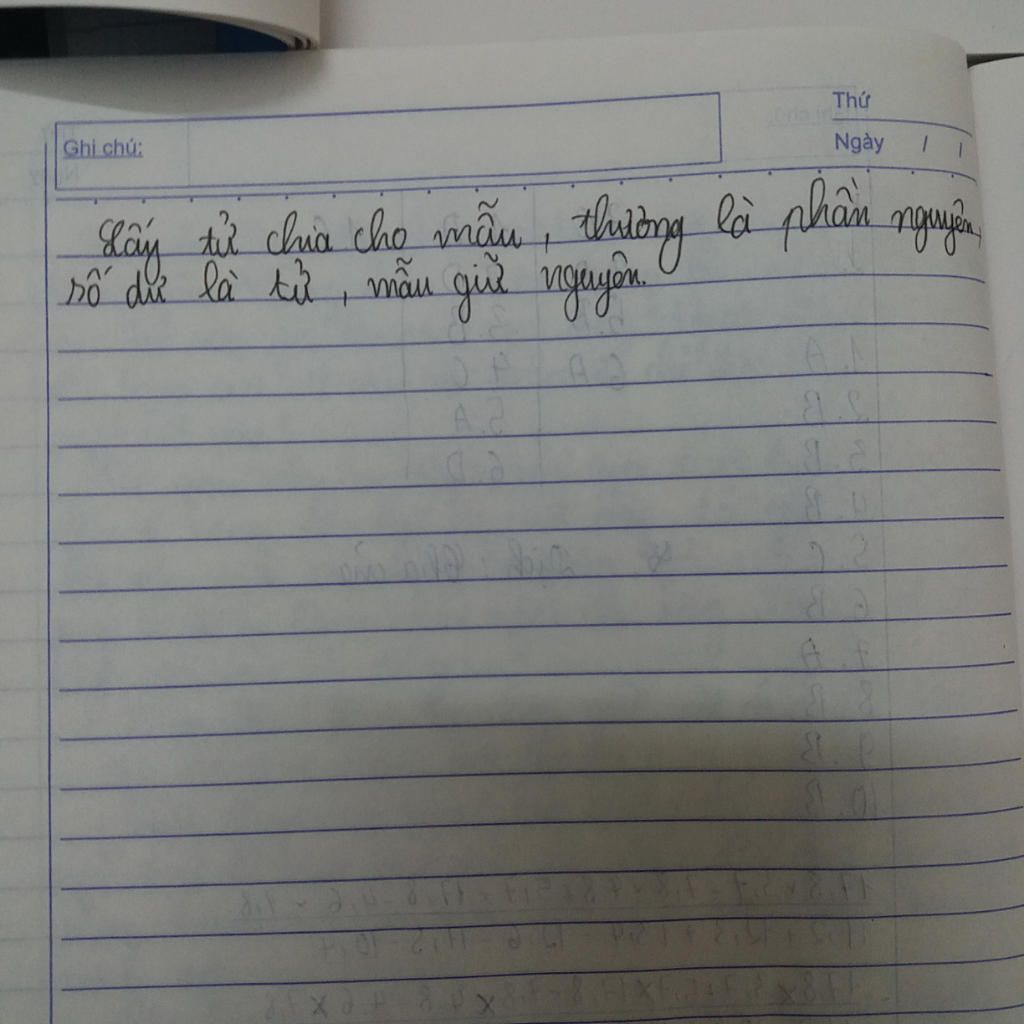 Thứ
Ghi chú:
Ngày / /
Lấy tử chia cho mẫu, thương là phần nguyên,
số dư là tử, mẫu giữ nguyên.